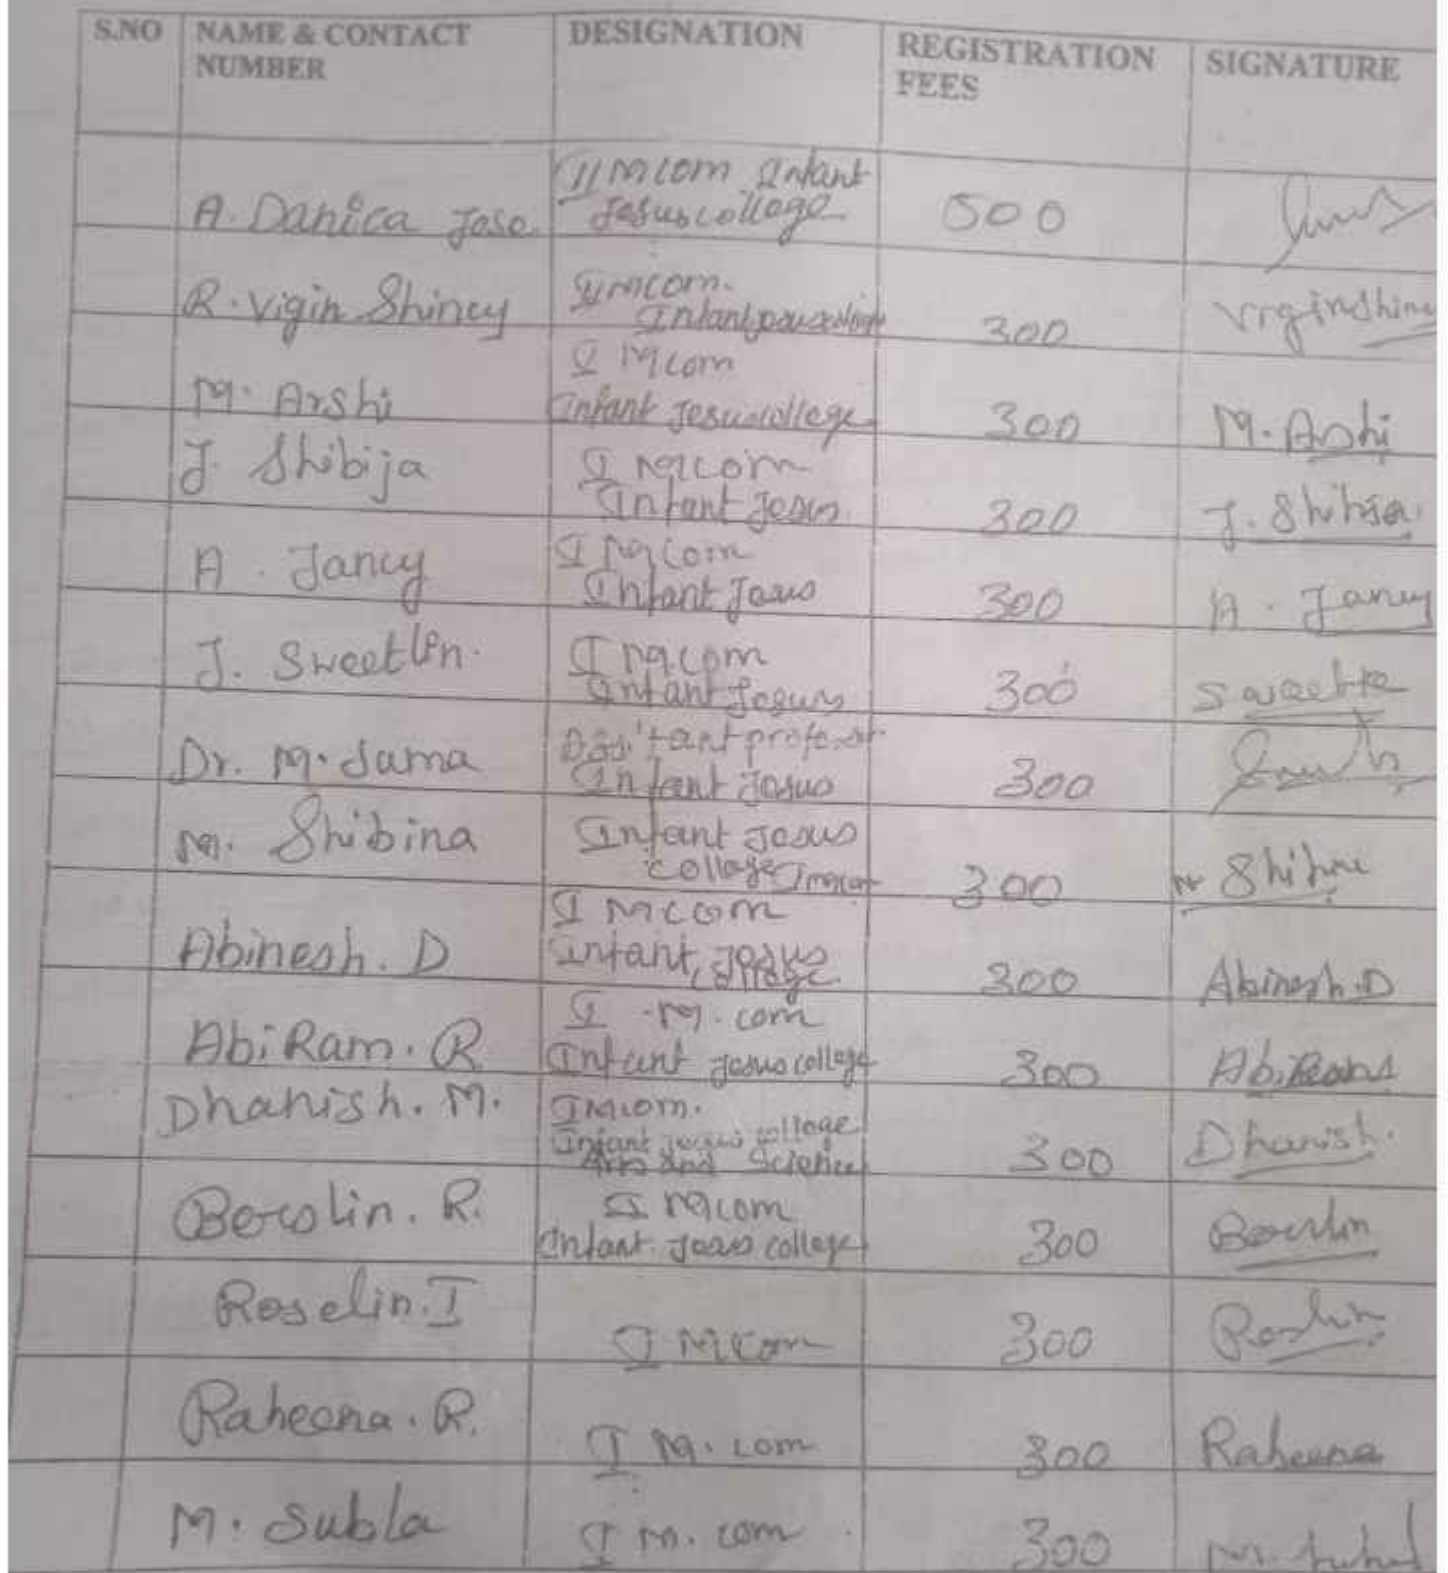 S.NO NAME & CONTACT NUMBER DESIGNATION REGISTRATION FEES SIGNATURE
A. Danica Jose II M com Infant Jesus college 500
R. Vigin Shincy II M com. Infant 300 Virginshiny
M. Arshi I M com Infant Jesus college 300 M. Arshi
J. Shibija I M com Infant Jesus 300 J. Shibija
A. Jancy I M com Infant Jesus 300 A. Jancy
J. Sweetlin. I M com Infant Jesus 300
Dr. M. Jama Assitant professor Infant Jesus 300
M. Shibina Infant Jesus college I Mcom 300
Abinesh. D I M com Infant Jesus college 300 Abinesh.D
AbiRam. R I M. com Infant Jesus college 300 AbiRam
Dhanish. M. I Mcom. Infant Jesus college Arts and Science 300 Dhanish.
Berslin. R. I M com Infant Jesus college 300
Roselin. I I M com 300 Roslin
Raheena. R. I M. com 300 Raheena
M. Subla I M. com 300